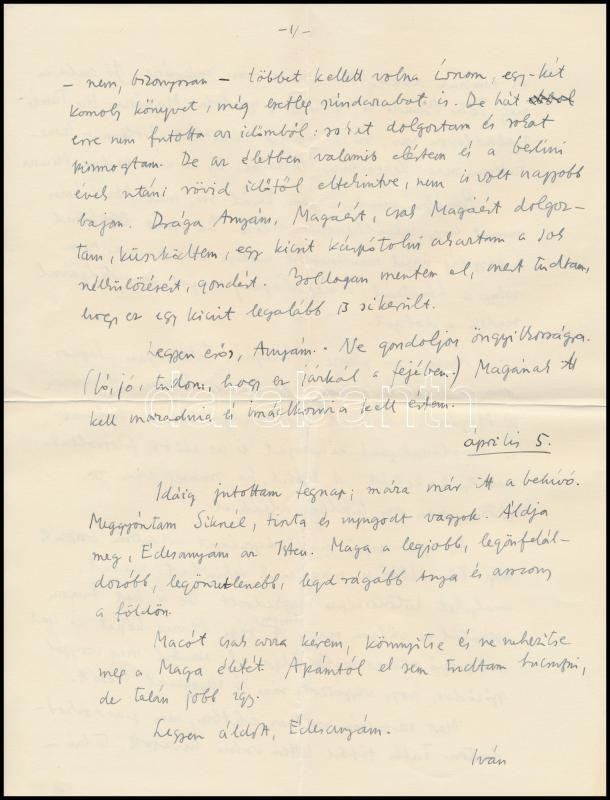 -1/-
- nem, bizonyosan - többet kellett volna írnom, egy-két
komoly könyvet, még esetleg színdarabot is. De hát
erre nem futotta az időmből: sokat dolgoztam és sokat
De az életben valamit elértem és a berlini
évek utáni rövid időtől eltekintve, nem is volt nagyobb
bajom. Drága Anyám, Magáért, csak Magáért dolgoz-
tam, küszködtem, egy kicsit kárpótolni akartam a sok
nélkülözésért, gondért. Boldogan mentem el, mert tudtam,
hogy ez egy kicsit legalább is sikerült.
Legyen erős, Anyám. Ne gondoljon öngyilkosságra.
(Jó, jó, tudom, hogy ez járkál a fejében.) Magának itt
kell maradnia és imádkoznia kell értem.
április 5.
Idáig jutottam tegnap; mára már itt a behívó.
Meggyóntam Siknél, tiszta és nyugodt vagyok. Áldja
meg, Édesanyám az Isten. Maga a legjobb, legönfelál-
dozóbb, legönzetlenebb, legdrágább Anya és asszony
a földön.
Macót csak arra kérem, könnyítse és ne nehezítse
meg a Maga életét. Apámtól el sem tudtam búcsúzni,
de talán jobb így.
Legyen áldott, Édesanyám.
Iván
darabanth